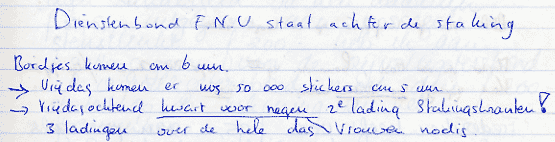 Dienstenbond F.N.V staat achter de staking
Bordjes komen om 6 uur.
→ Vrijdag komen er nog 50 000 stickers om 5 uur
→ Vrijdagochtend kwart voor negen 2e lading Stakingskranten!
3 ladingen over de hele dag Vrouwen nodig.